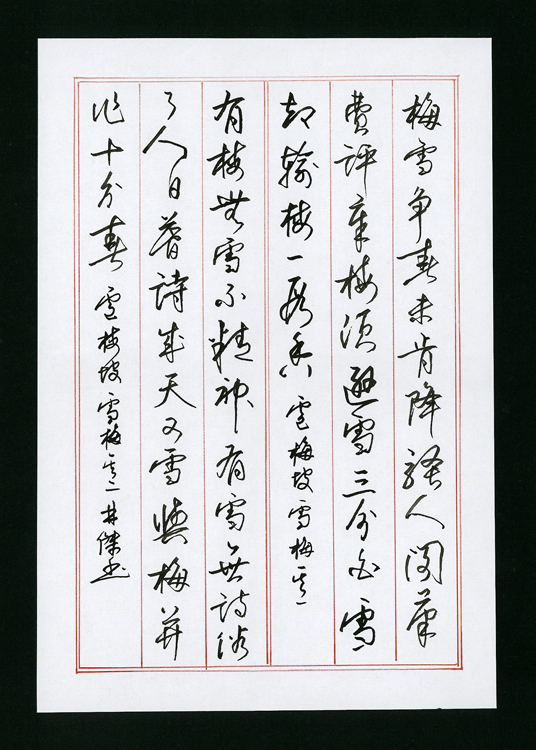 梅雪争春未肯降骚人阁笔
费评章梅须逊雪三分白雪
却输梅一段香 卢梅坡雪梅其一
有梅无雪不精神有雪无诗俗
了人日暮诗成天又雪与梅并
作十分春 卢梅坡雪梅其二 林杰书